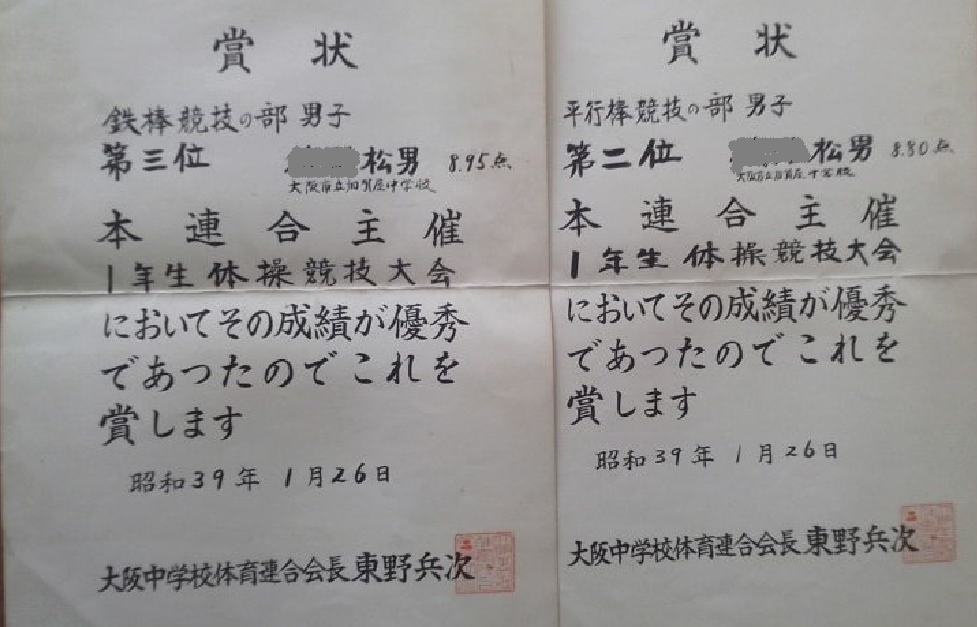 賞状
鉄棒競技の部 男子
第三位 松男 8.95点
大阪市立加賀屋中学校
本連合主催
1年生体操競技大会
においてその成績が優秀
であつたのでこれを
賞します
昭和39年1月26日
大阪中学校体育連合会長 東野兵次
賞状
平行棒競技の部 男子
第二位 松男 8.80点
大阪市立加賀屋中学校
本連合主催
1年生体操競技大会
においてその成績が優秀
であつたのでこれを
賞します
昭和39年1月26日
大阪中学校体育連合会長 東野兵次